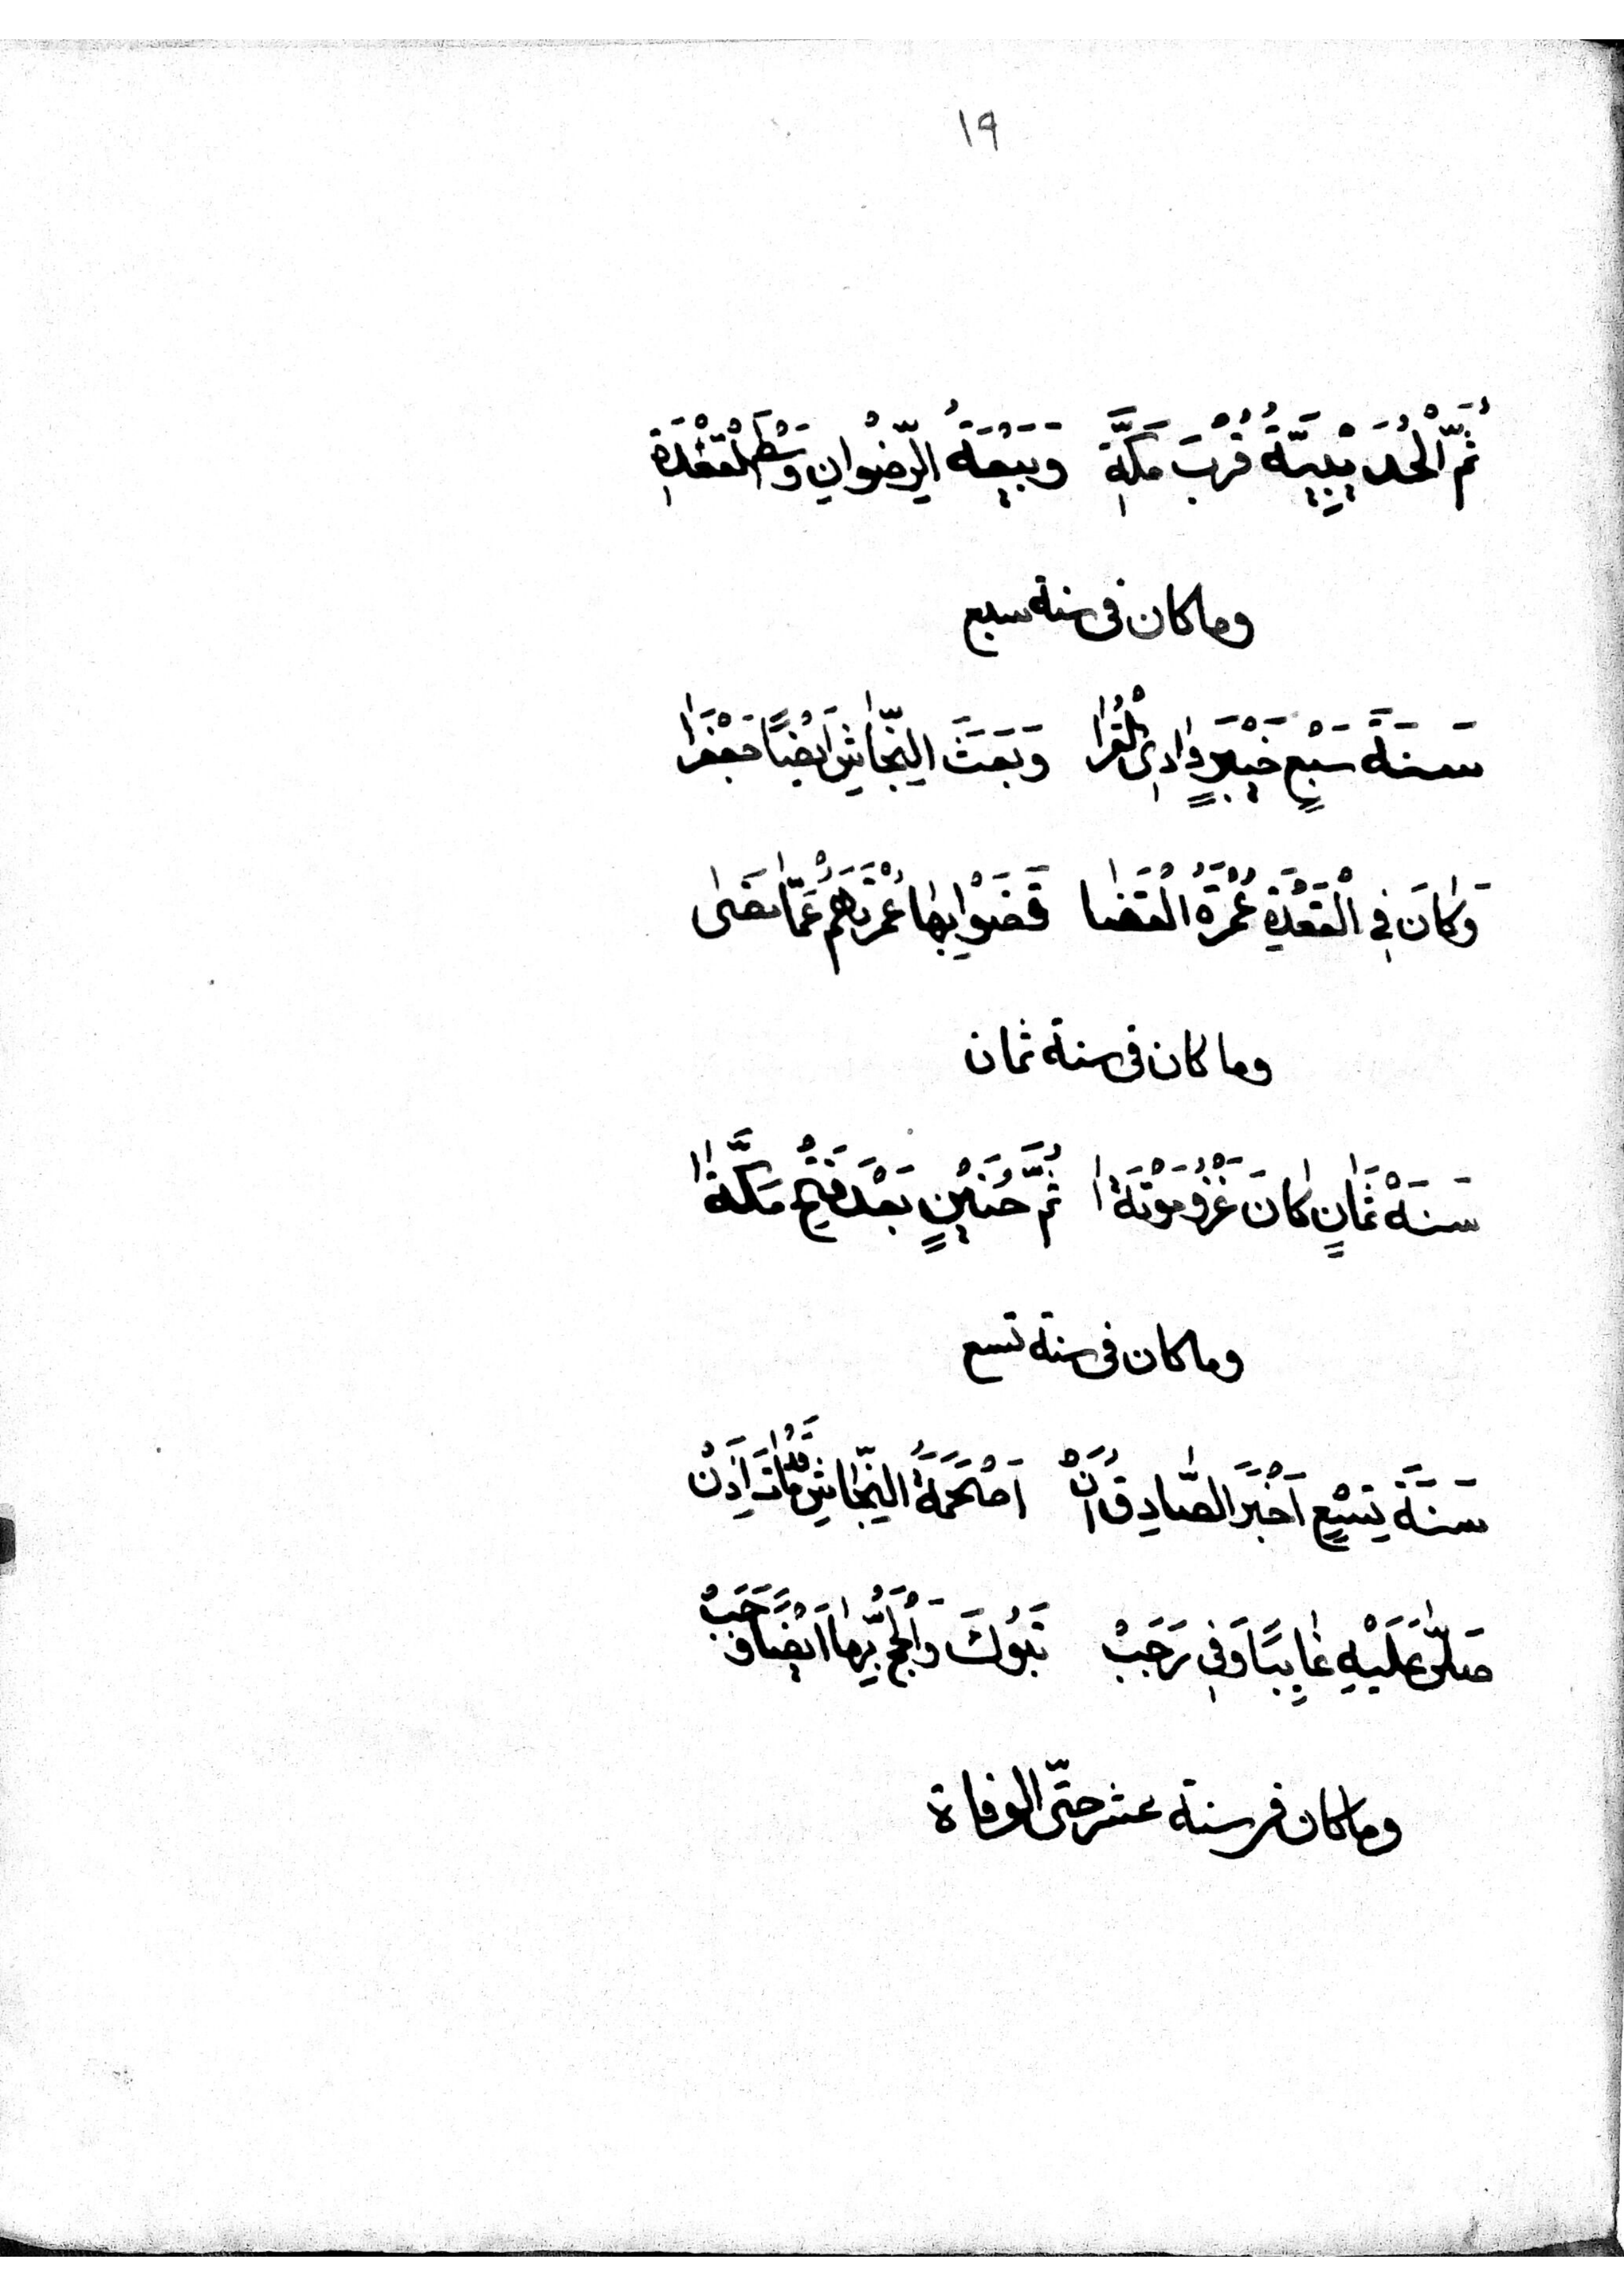 ١٩
ثُمَّ الْحُدَيْبِيَّةُ قُرْبَ مَكَّةِ وَبَيْعَةُ الرِّضْوَانِ وَسْطَ الْقَعْدَةِ
وما كان في سنة سبع
سَنَةَ سَبْعٍ خَيْبَرٍ وَادِي الْقُرَا وَبَعَثَ النَّجَاشِ اَيْضًا جَعْفَرَا
وَكَانَ فِي الْقَعْدَةِ عُمْرَةُ الْقَضَا قَضَوْا بِهَا عُمْرَتَهُمْ عَمَّا مَضَى
وما كان في سنة ثمان
سَنَةْ ثَمَانٍ كَانَ غَزْوُ مَوْتَةَا ثُمَّ حُنَيْنٍ بَعْدَ فَتْحِ مَكَّةَا
وما كان في سنة تسع
سَنَةَ تِسْعٍ اَخْبَرَ الصَّادِقُ اَنْ اَصْحَمَةَ النَّجَاشِ قَدْ مَاتَ اَذِنْ
صَلَّى عَلَيْهِ غَايِبًا وَفِي رَجَبْ تَبُوكَ وَالْحَجُّ بِهَا اَيْضًا وَجَبْ
وما كان في سنة عشر حتّى الوفاة